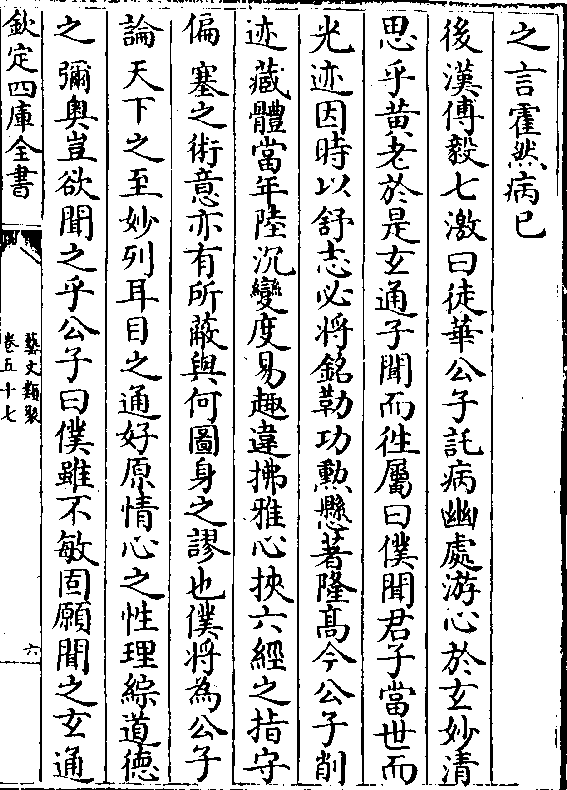 之言霍然病已
後漢傅毅七激曰徒華公子託病幽處游心於玄妙清
思乎黄老於是玄通子聞而徃屬曰僕聞君子當世而
光迹因時以舒志必將銘勒功勲懸著隆髙今公子削
迹藏體當年陸沉變度易趣違拂雅心挾六經之指守
偏塞之術意亦有所蔽與何圖身之謬也僕將為公子
論天下之至妙列耳目之通好原情心之性理綜道德
之彌奥豈欲聞之乎公子曰僕雖不敏固願聞之玄通
欽定四庫全書
藝文類聚
卷五十七
六